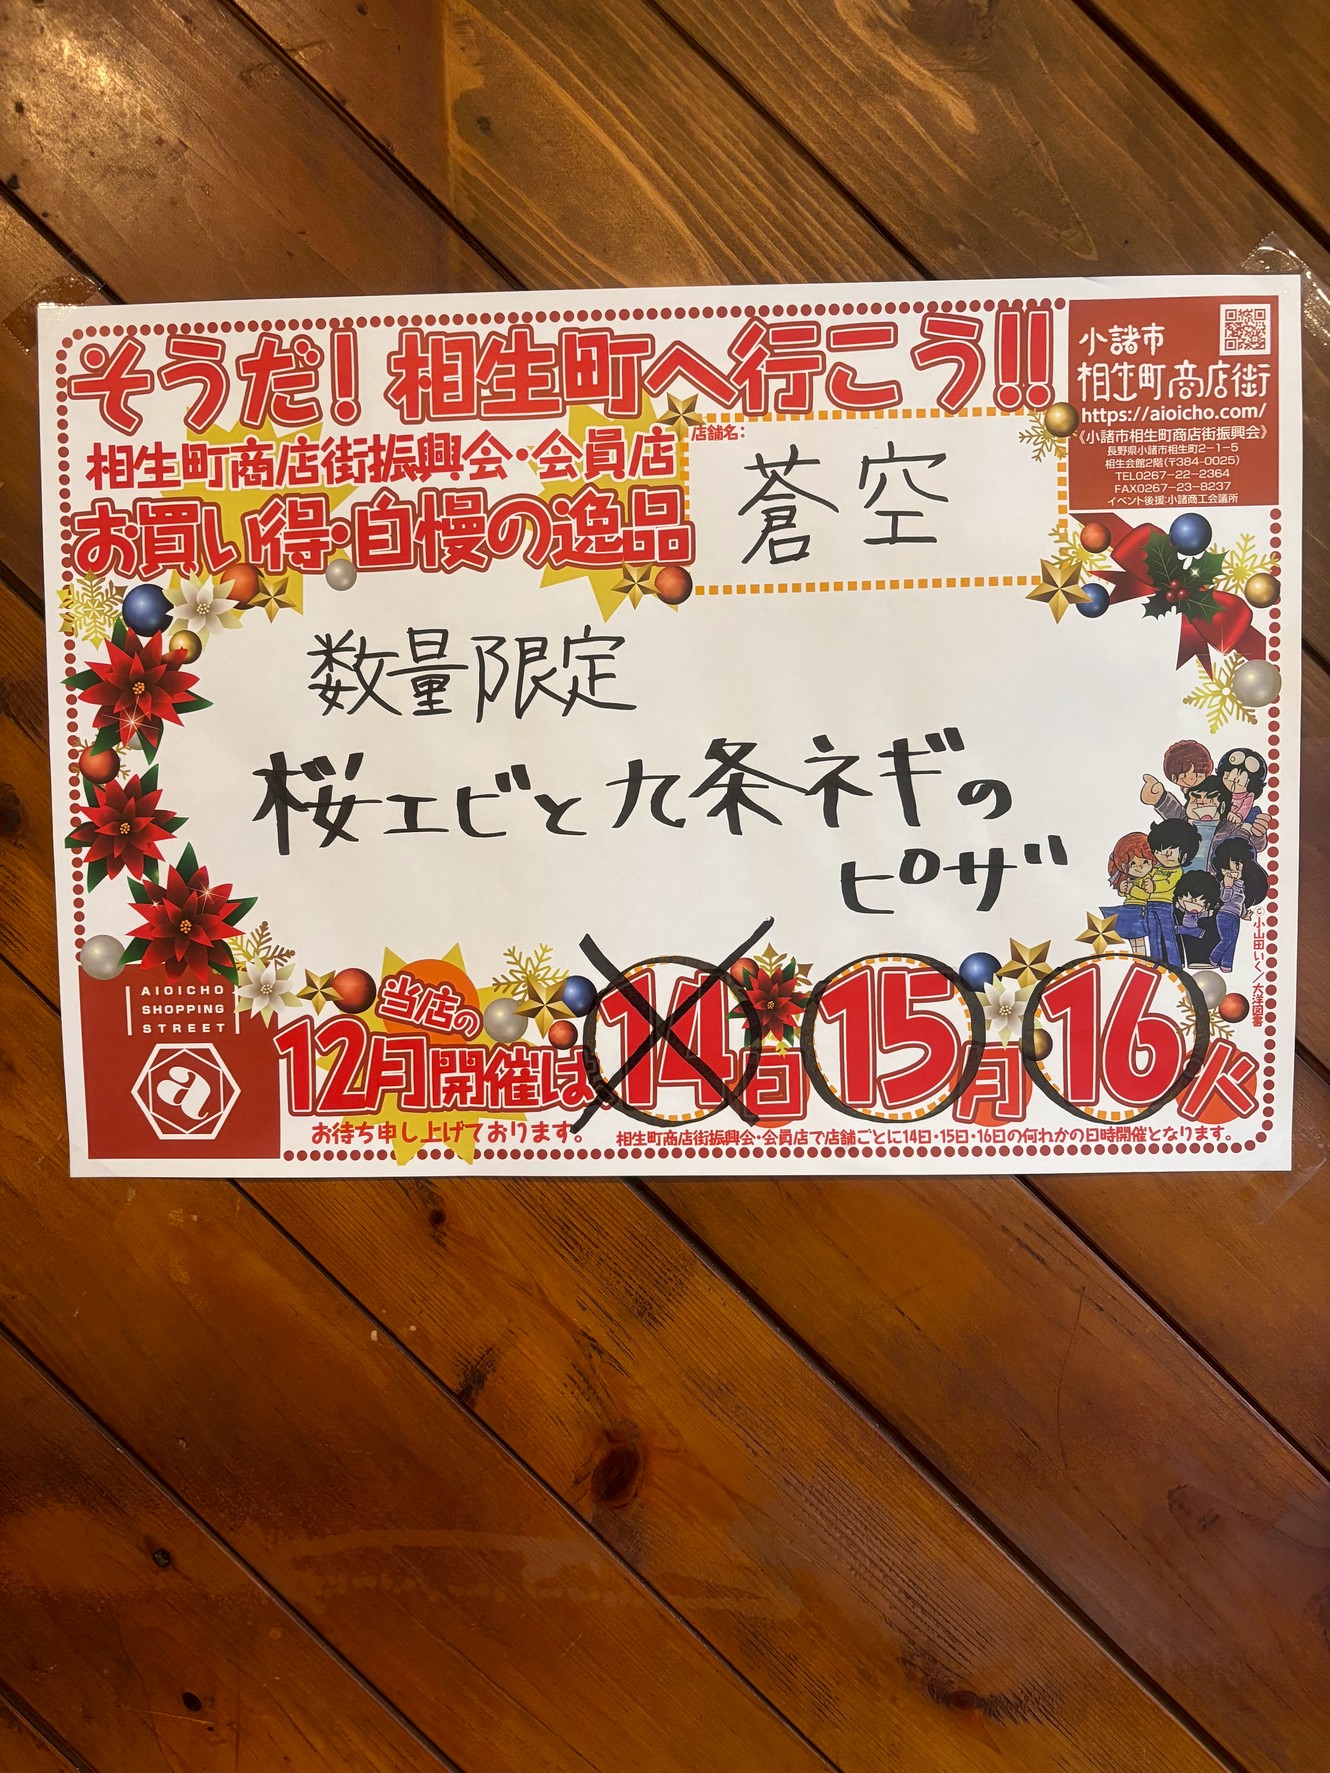 そうだ！相生町へ行こう!!
相生町商店街振興会・会員店
お買い得・自慢の逸品
店舗名：
蒼空
小諸市
相生町商店街
https://aioicho.com/
《小諸市相生町商店街振興会》
長野県小諸市相生町2-1-5
相生会館2階(〒384-0025)
TEL0267-22-2364
FAX0267-23-8237
イベント後援:小諸商工会議所
数量限定
桜エビと九条ネギの
ピザ
©小山田いく／大洋図書
AIOICHO
SHOPPING
STREET
a
当店の
12月開催は、
14日 15月 16火
お待ち申し上げております。
相生町商店街振興会・会員店で店舗ごとに14日・15日・16日の何れかの日時開催となります。